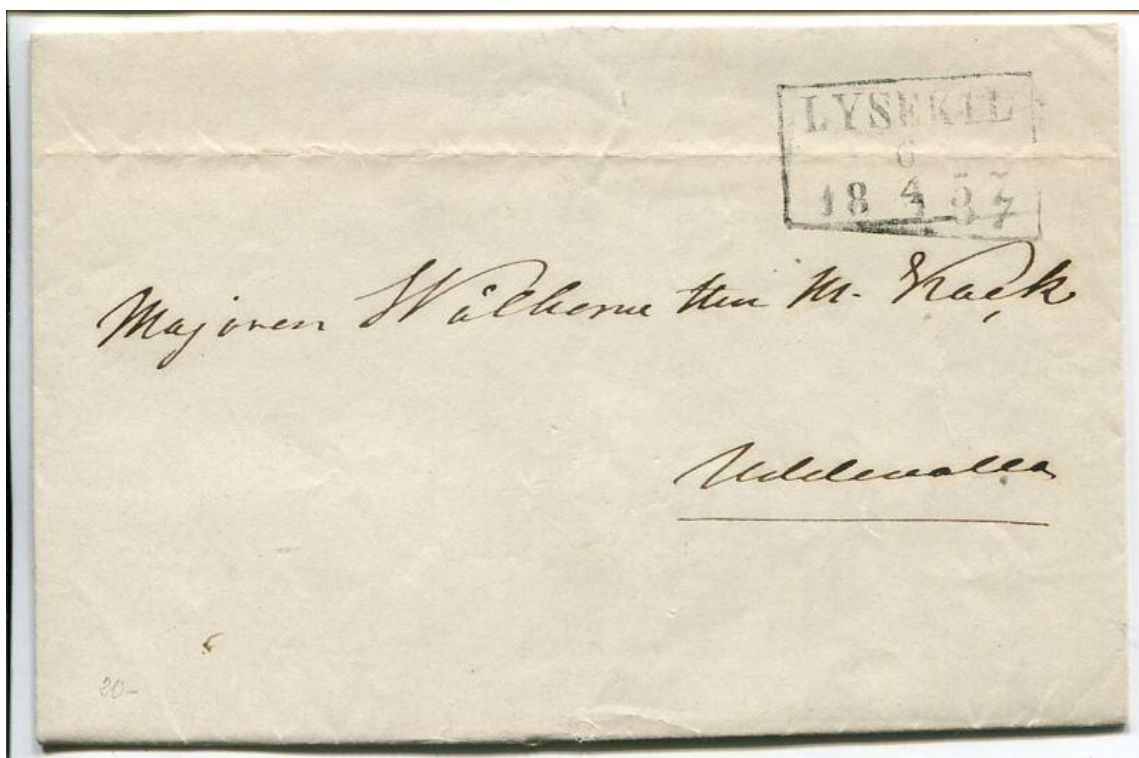 LYSEKIL
6
18 4 57
Majoren Wälborne Herr M. Kock
Uddevalla
20-